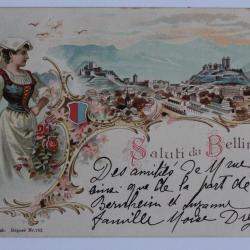 Saluti da Bellin
Des amitiés de M
ainsi que de la part de
Bernheim et Suzanne
famille Moïse Dre
Dép